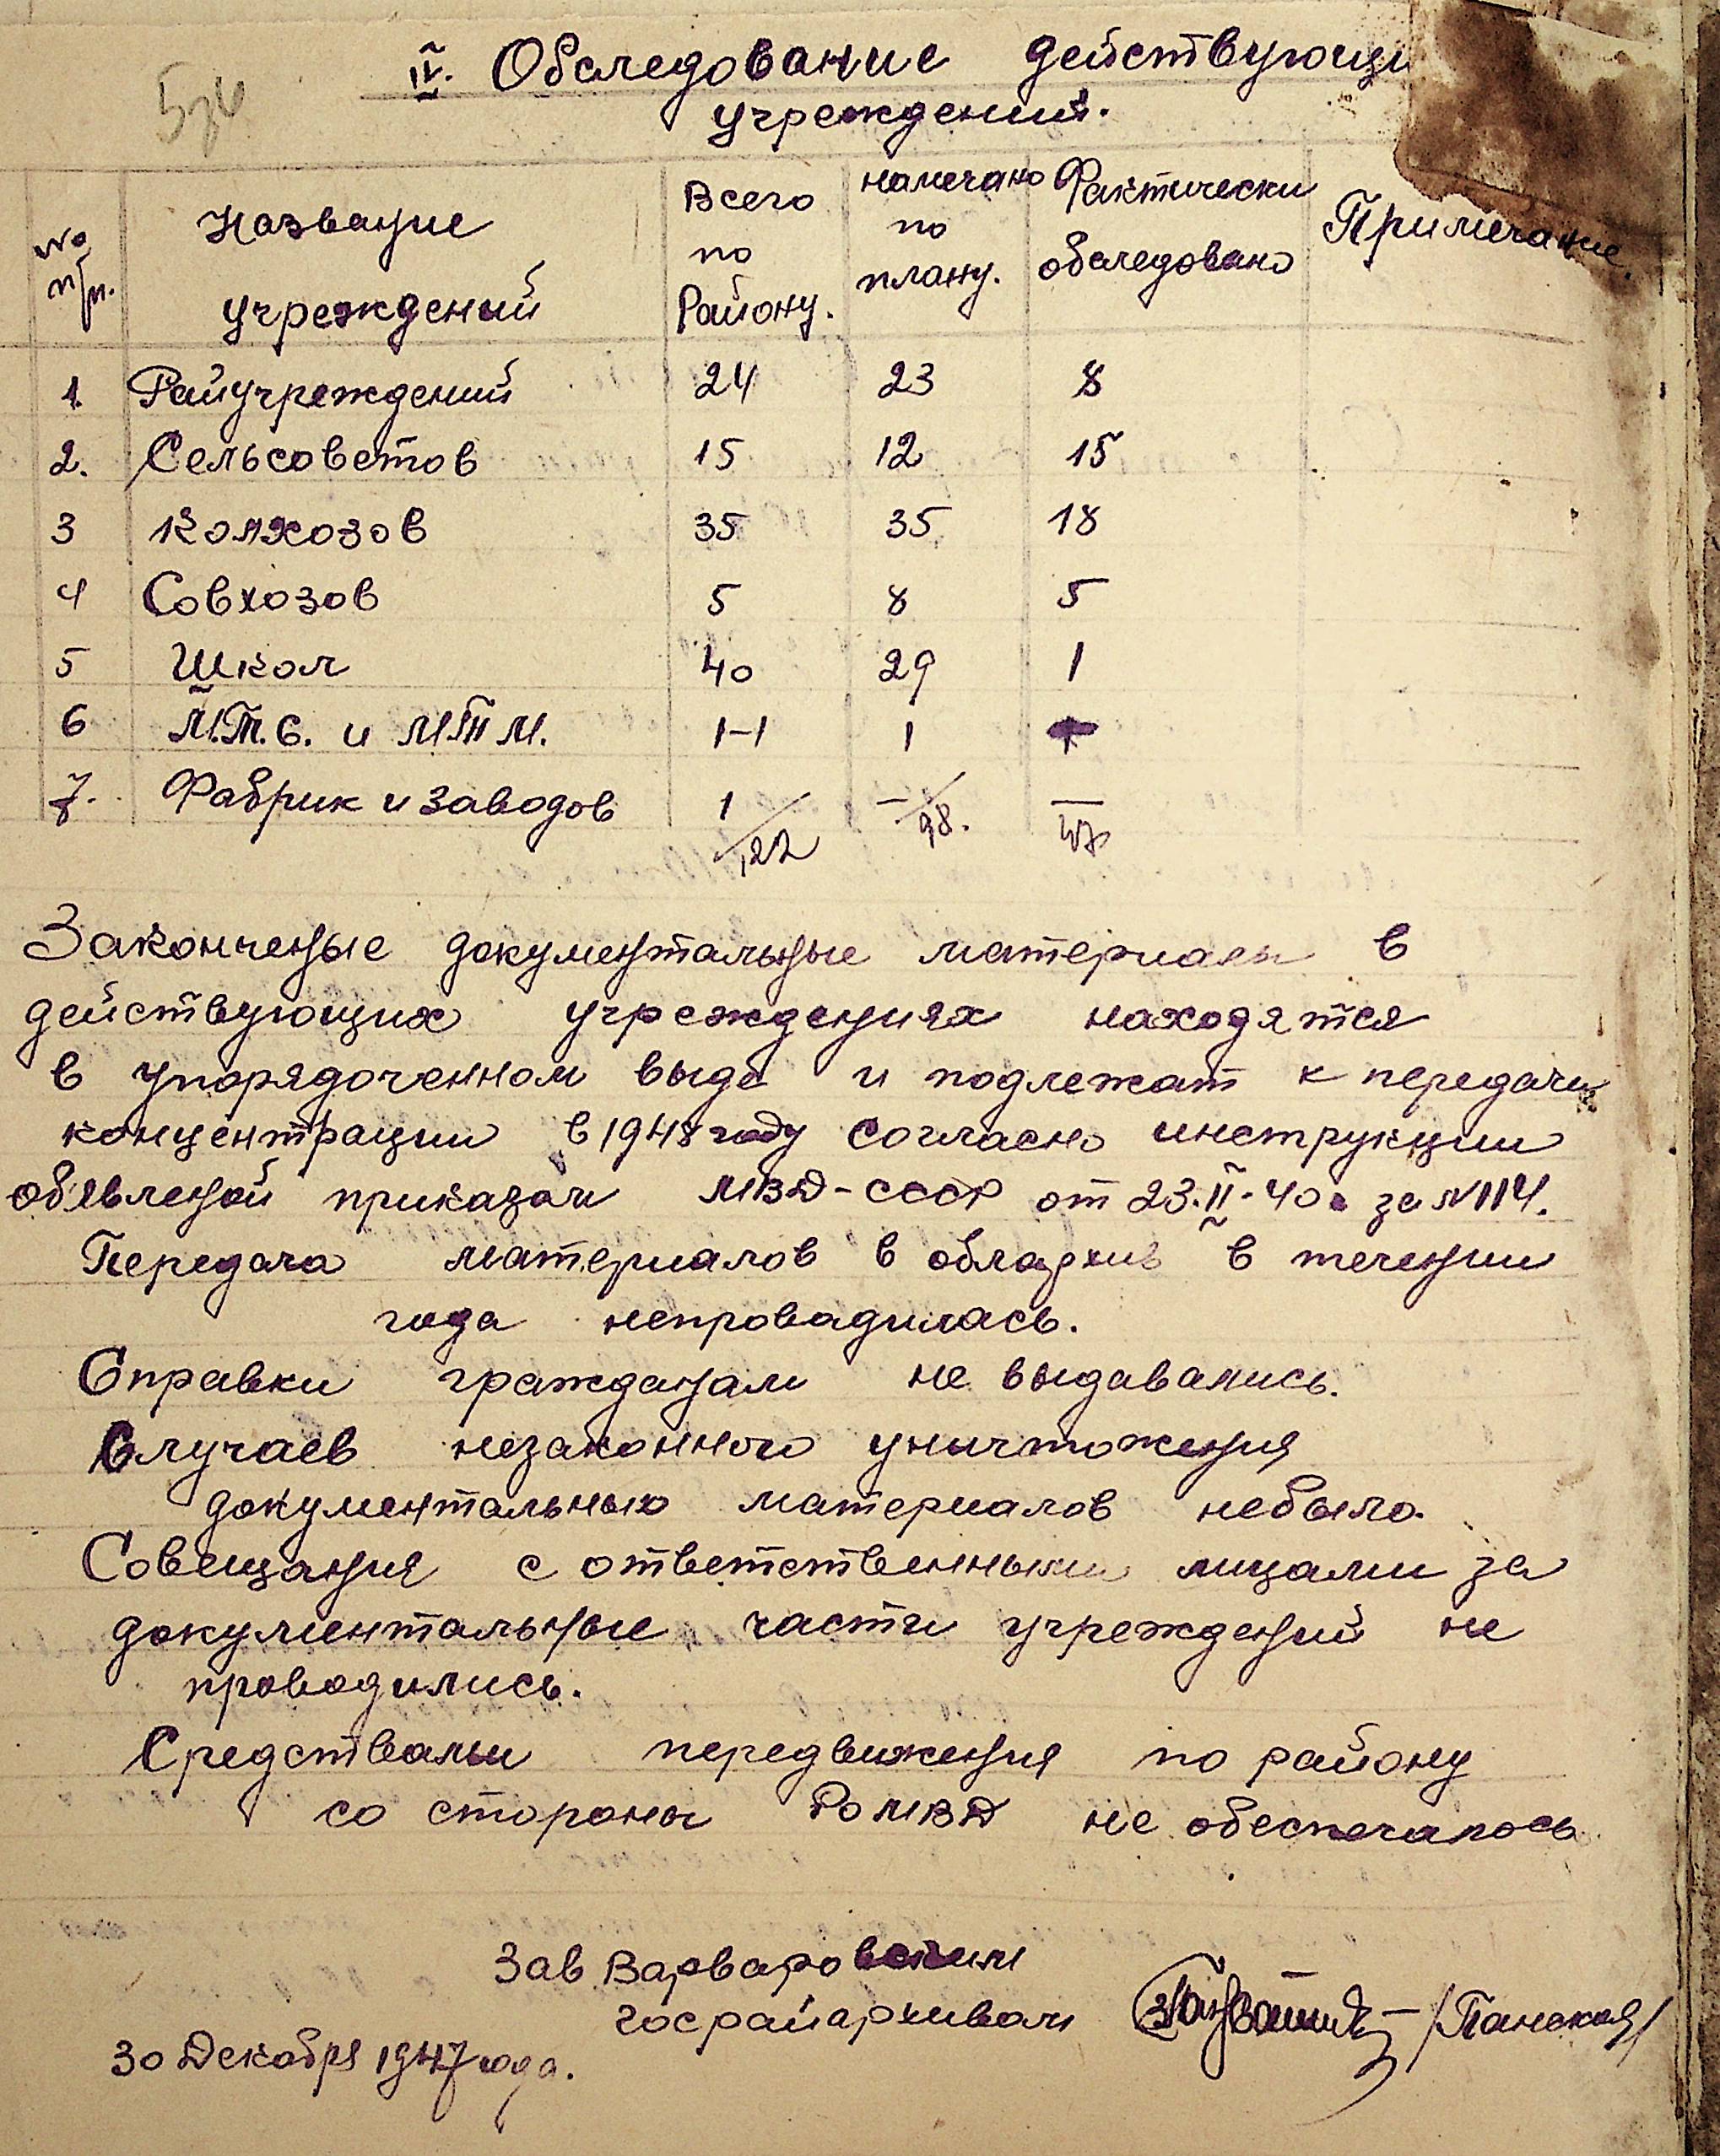 IV. Обследование действующи
учреждений.
№ п/п. Название учреждений Всего по Району. намечано по плану. Фактически обследовано Примечание.
1. Райучреждений 24 23 8
2. Сельсоветов 15 12 15
3 Колхозов 35 35 18
4 Совхозов 5 8 5
5 Школ 40 29 1
6 М.Т.С. и МТМ. 1-1 1
7. Фабрик и заводов 1 — —
122 98. 47
Законченые документальные материалы в
действующих учреждениях находятся
в упорядоченном выде и подлежат к передачи
концентрации в 1948 году согласно инструкции
обявленой приказом МВД-СССР от 23.II-40 за №114.
Передача материалов в облархив в течении
года непровадилась.
Справки гражданам не выдавались.
Случаев незаконного уничтожения
документальных материалов небыло.
Совещания с ответственными лицами за
документальные части учреждений не
проводились.
Средствами передвижения по району
со стороны РОМВД не обеспечалось
Зав Варваровским
госрайархивом /Панская/
30 Декабря 1947 года.